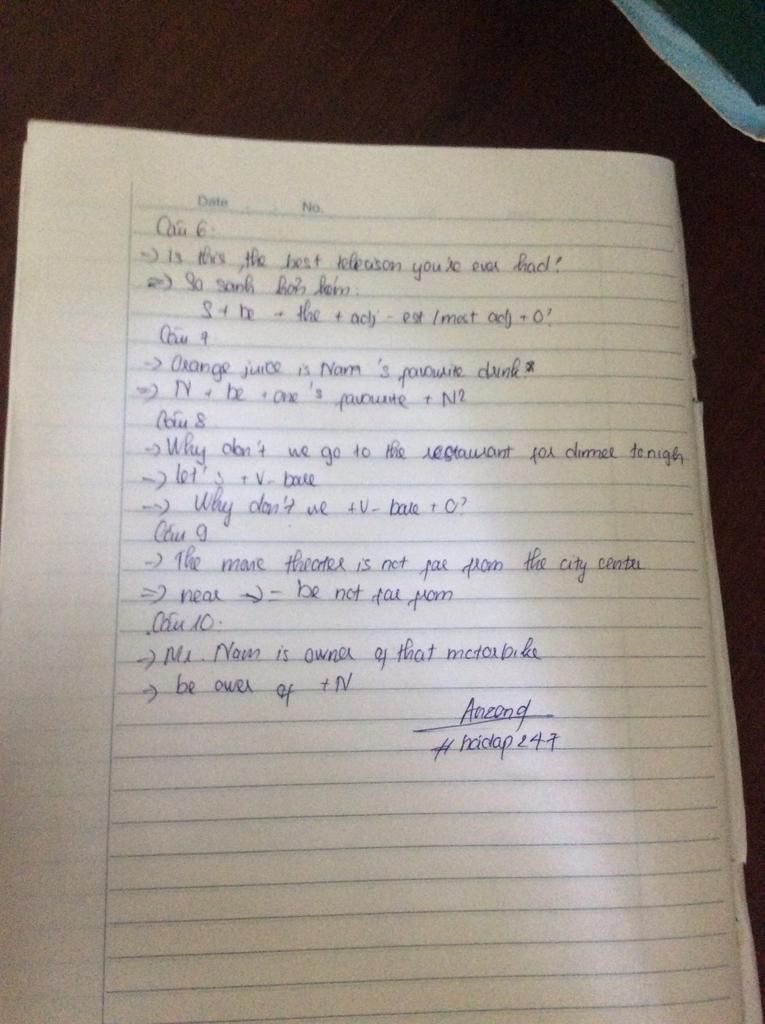 Date No.
Câu 6:
-> Is this the best televison you're ever had?
=> So sánh hơn kém:
S + be + the + adj - est / most adj + O?
Câu 7
-> Orange juice is Nam 's favourite drink.
=> N + be + one 's favourite + N2
Câu 8
-> Why don't we go to the restaurant for dinner tonigh
-> let's + V - bare
-> Why don't we + V - bare + O?
Câu 9
-> The movie theater is not far from the city center
=> near -> = be not far from
Câu 10:
-> Mr. Nam is owner of that motorbike
-> be ower of + N
# hoidap247